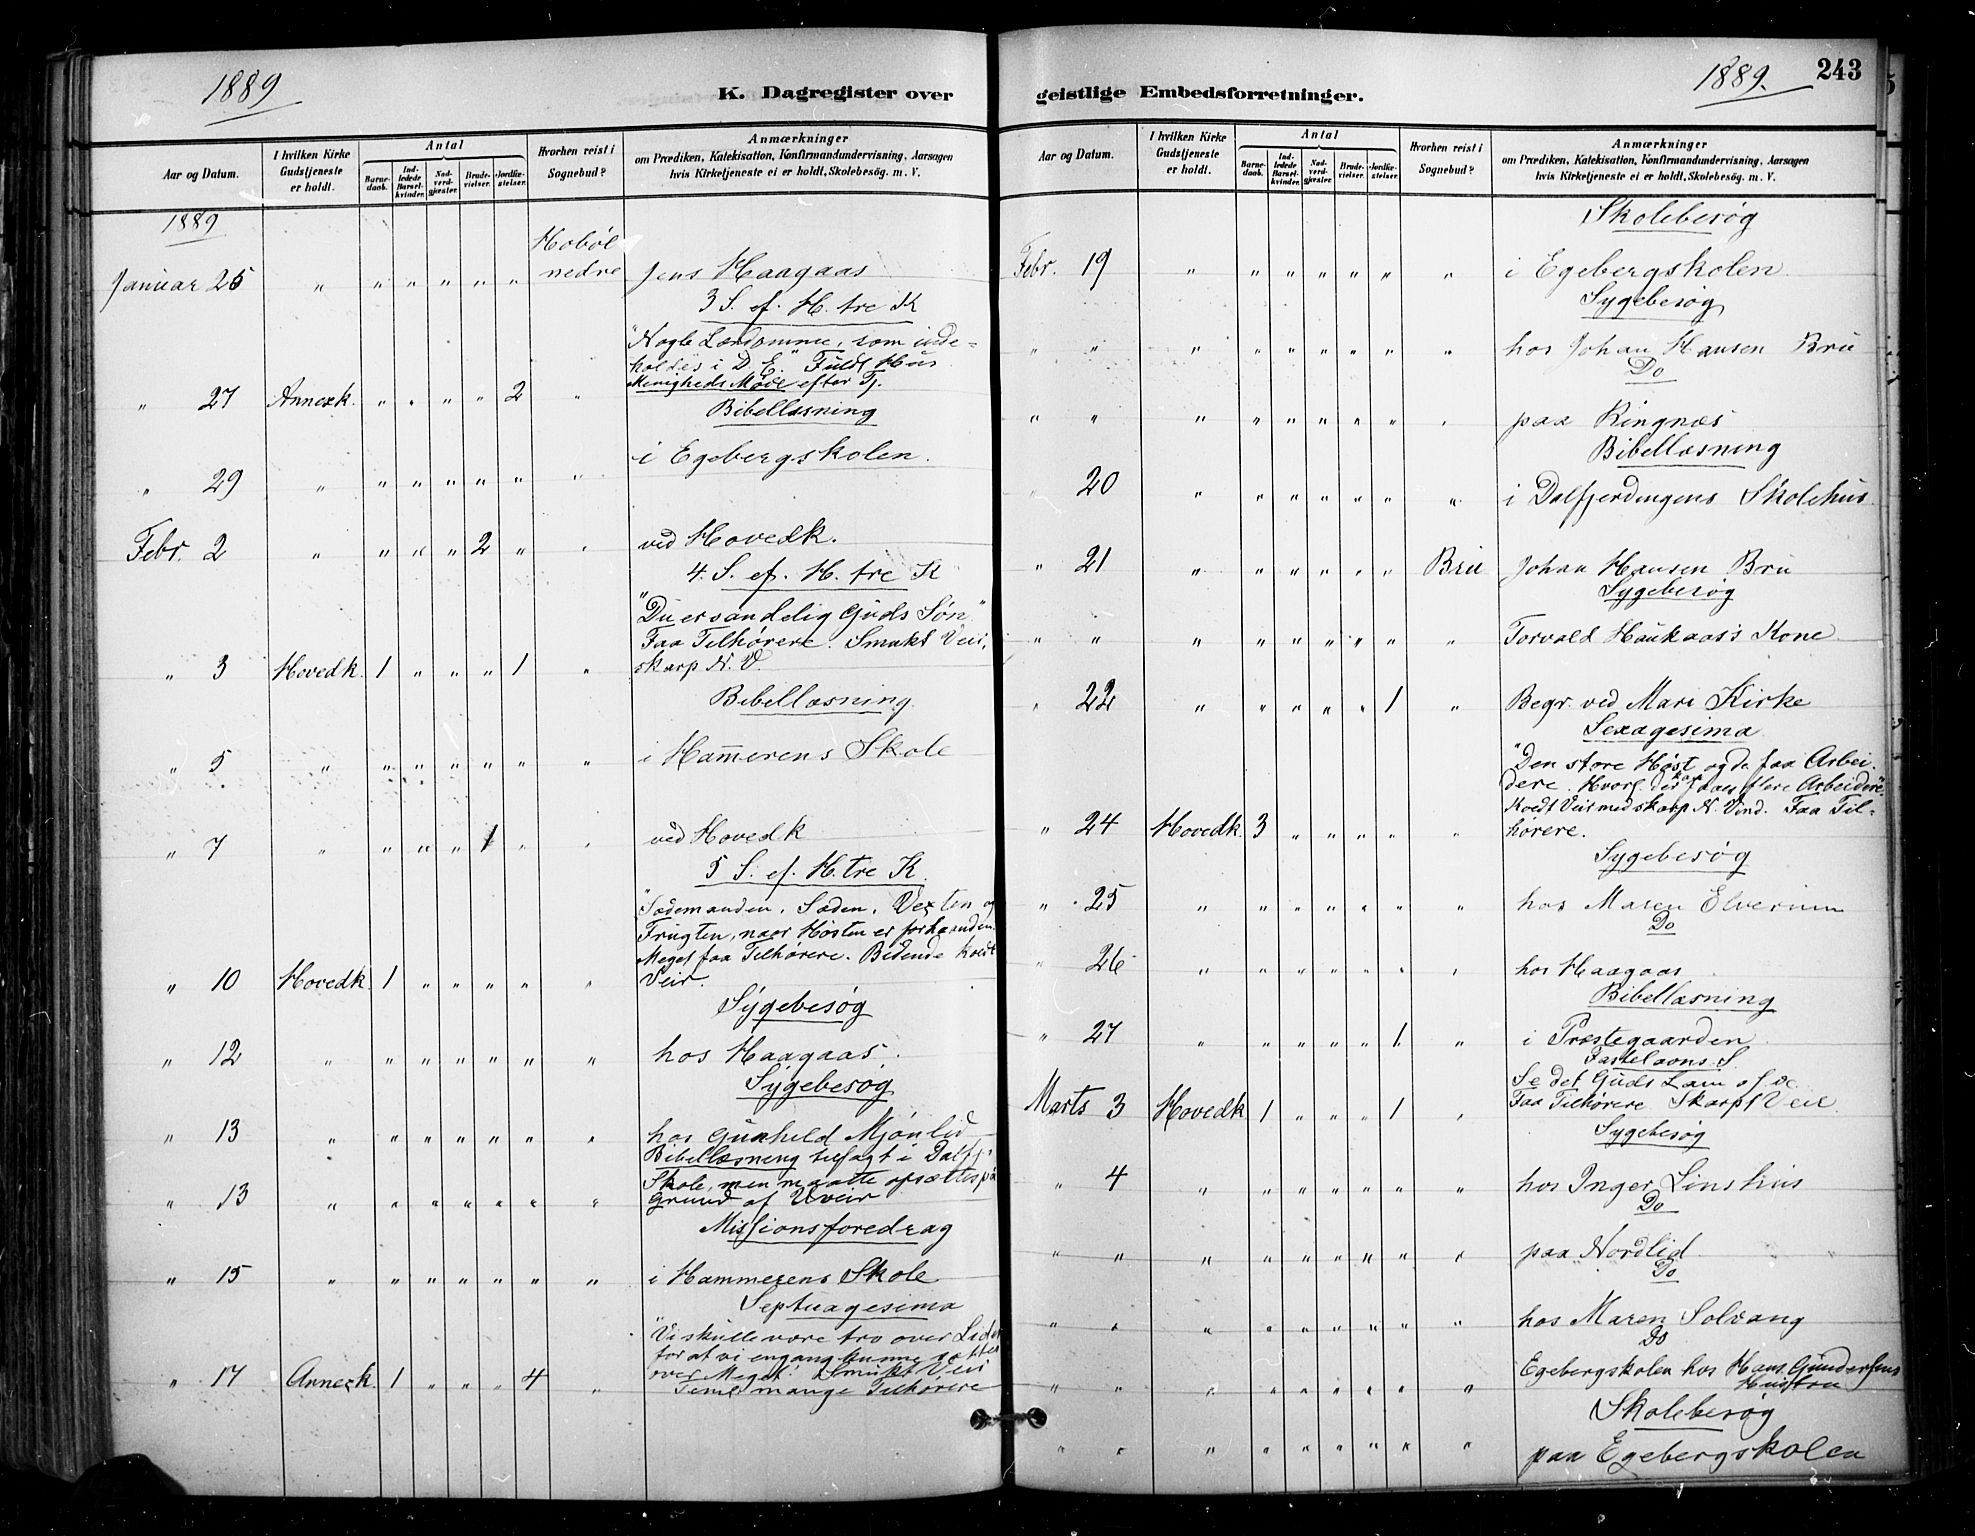 1889
K. Dagregister over
I hvilken Kirke
Gudstjeneste
er holdt.
Aar og Datum.
Antal
Barne-
daab.
Ind-
ledede
Barsel-
kvinder.
Nad-
verd-
gjæster.
Brude-
vielser.
Jordfæ-
stelser.
Hvorhen reist i
Sognebud?
Anmærkninger
om Prædiken, Katekisation, Konfirmandundervisning, Aarsagen
hvis Kirketjeneste ei er holdt, Skolebesøg. m. V.
1889
Hobøl
Januar 25 " " " " " " nedre Jens Haagaas
3 S. ef. H. tre K
"Nogle Lærdomme, som inde-
holdes i D. E." Fuldt Hus
Menigheds Møde efter Tj.
" 27 Annexk. " " " " 2 "
Bibellæsning
i Egebergskolen.
" 29 " " " " " " "
Febr. 2 " " " " 2 " " ved Hovedk.
4. S. ef. H. tre K
"Du er sandelig Guds Søn"
Faa Tilhørere. Smukt Veir,
" 3 Hovedk. 1 " " " 1 " skarp N. V.
Bibellæsning
" 5 " " " " " " " i Ham̄erens Skole
" 7 " " " " 1 " " ved Hovedk
5 S. ef. H. tre K.
"Sædemanden, Sæden, Vexten og
Frugten, naar Høsten er forhaanden.
Meget faa Tilhørere. Bidende koldt
" 10 Hovedk. 1 " " " " " Veir.
Sygebesøg
" 12 " " " " " " " hos Haagaas.
Sygebesøg
" 13 " " " " " " " hos Gunhild Mjönlid
Bibellæsning tilsagt i Dalfj.
Skole, men maatte opsættes på
" 13 " " " " " " " Grund af Uveir
Missionsforedrag
" 15 " " " " " " " i Hammerens Skole
Septuagesima
"Vi skulle være tro over Lidet
for at vi engang kunne sættes
over Meget". Smukt Veir
" 17 Annexk. 1 " " " 4 " Temel. mange Tilhørere
1889.
243
geistlige Embedsforretninger.
Aar og Datum.
I hvilken Kirke
Gudstjeneste
er holdt.
Antal
Barne-
daab.
Ind-
ledede
Barsel-
kvinder.
Nad-
verd-
gjæster.
Brude-
vielser.
Jordfæ-
stelser.
Hvorhen reist i
Sognebud?
Anmærkninger
om Prædiken, Katekisation, Konfirmandundervisning, Aarsagen
hvis Kirketjeneste ei er holdt, Skolebesög. m. V.
Skolebesøg
Febr. 19 " " " " " " " i Egebergskolen
Sygebesøg
" " " " " " " " " hos Johan Hansen Bru
Do
" " " " " " " " " paa Ringnæs
Bibellæsning
" 20 " " " " " " " i Dalfjerdingens Skolehus
" 21 " " " " " " Bru Johan Hansen Bru
Sygebesøg
" " " " " " " " " Torvald Haukaas's Kone
" 22 " " " " " 1 " Begr. ved Mari Kirke
Sexagesima
"Den store Høst og de faa Arbei-
dere. Hvorl. der kan faaes flere Arbeidere".
Koldt Veir med skarp N. Vind. Faa Til-
" 24 Hovedk. 3 " " " " " hørere.
Sygebesøg
" 25 " " " " " " " hos Maren Elverum
Do
" 26 " " " " " " " hos Haagaas
Bibellæsning
" 27 " " " " " 1 " i Præstegaarden
Fastelavns S.
Se det Guds Lam osv.
Marts 3 Hovedk 1 " " " 1 " Faa Tilhørere Skarpt Veir
Sygebesøg
" 4 " " " " " " " hos Inger Linshus
Do
" " " " " " " " " paa Nordlid
Do
" " " " " " " " " hos Maren Solvang
Do
Egebergskolen hos Hans Gundersens
" " " " " " " " " Hustru
Skolebesøg
" " " " " " " " " paa Egebergskolen